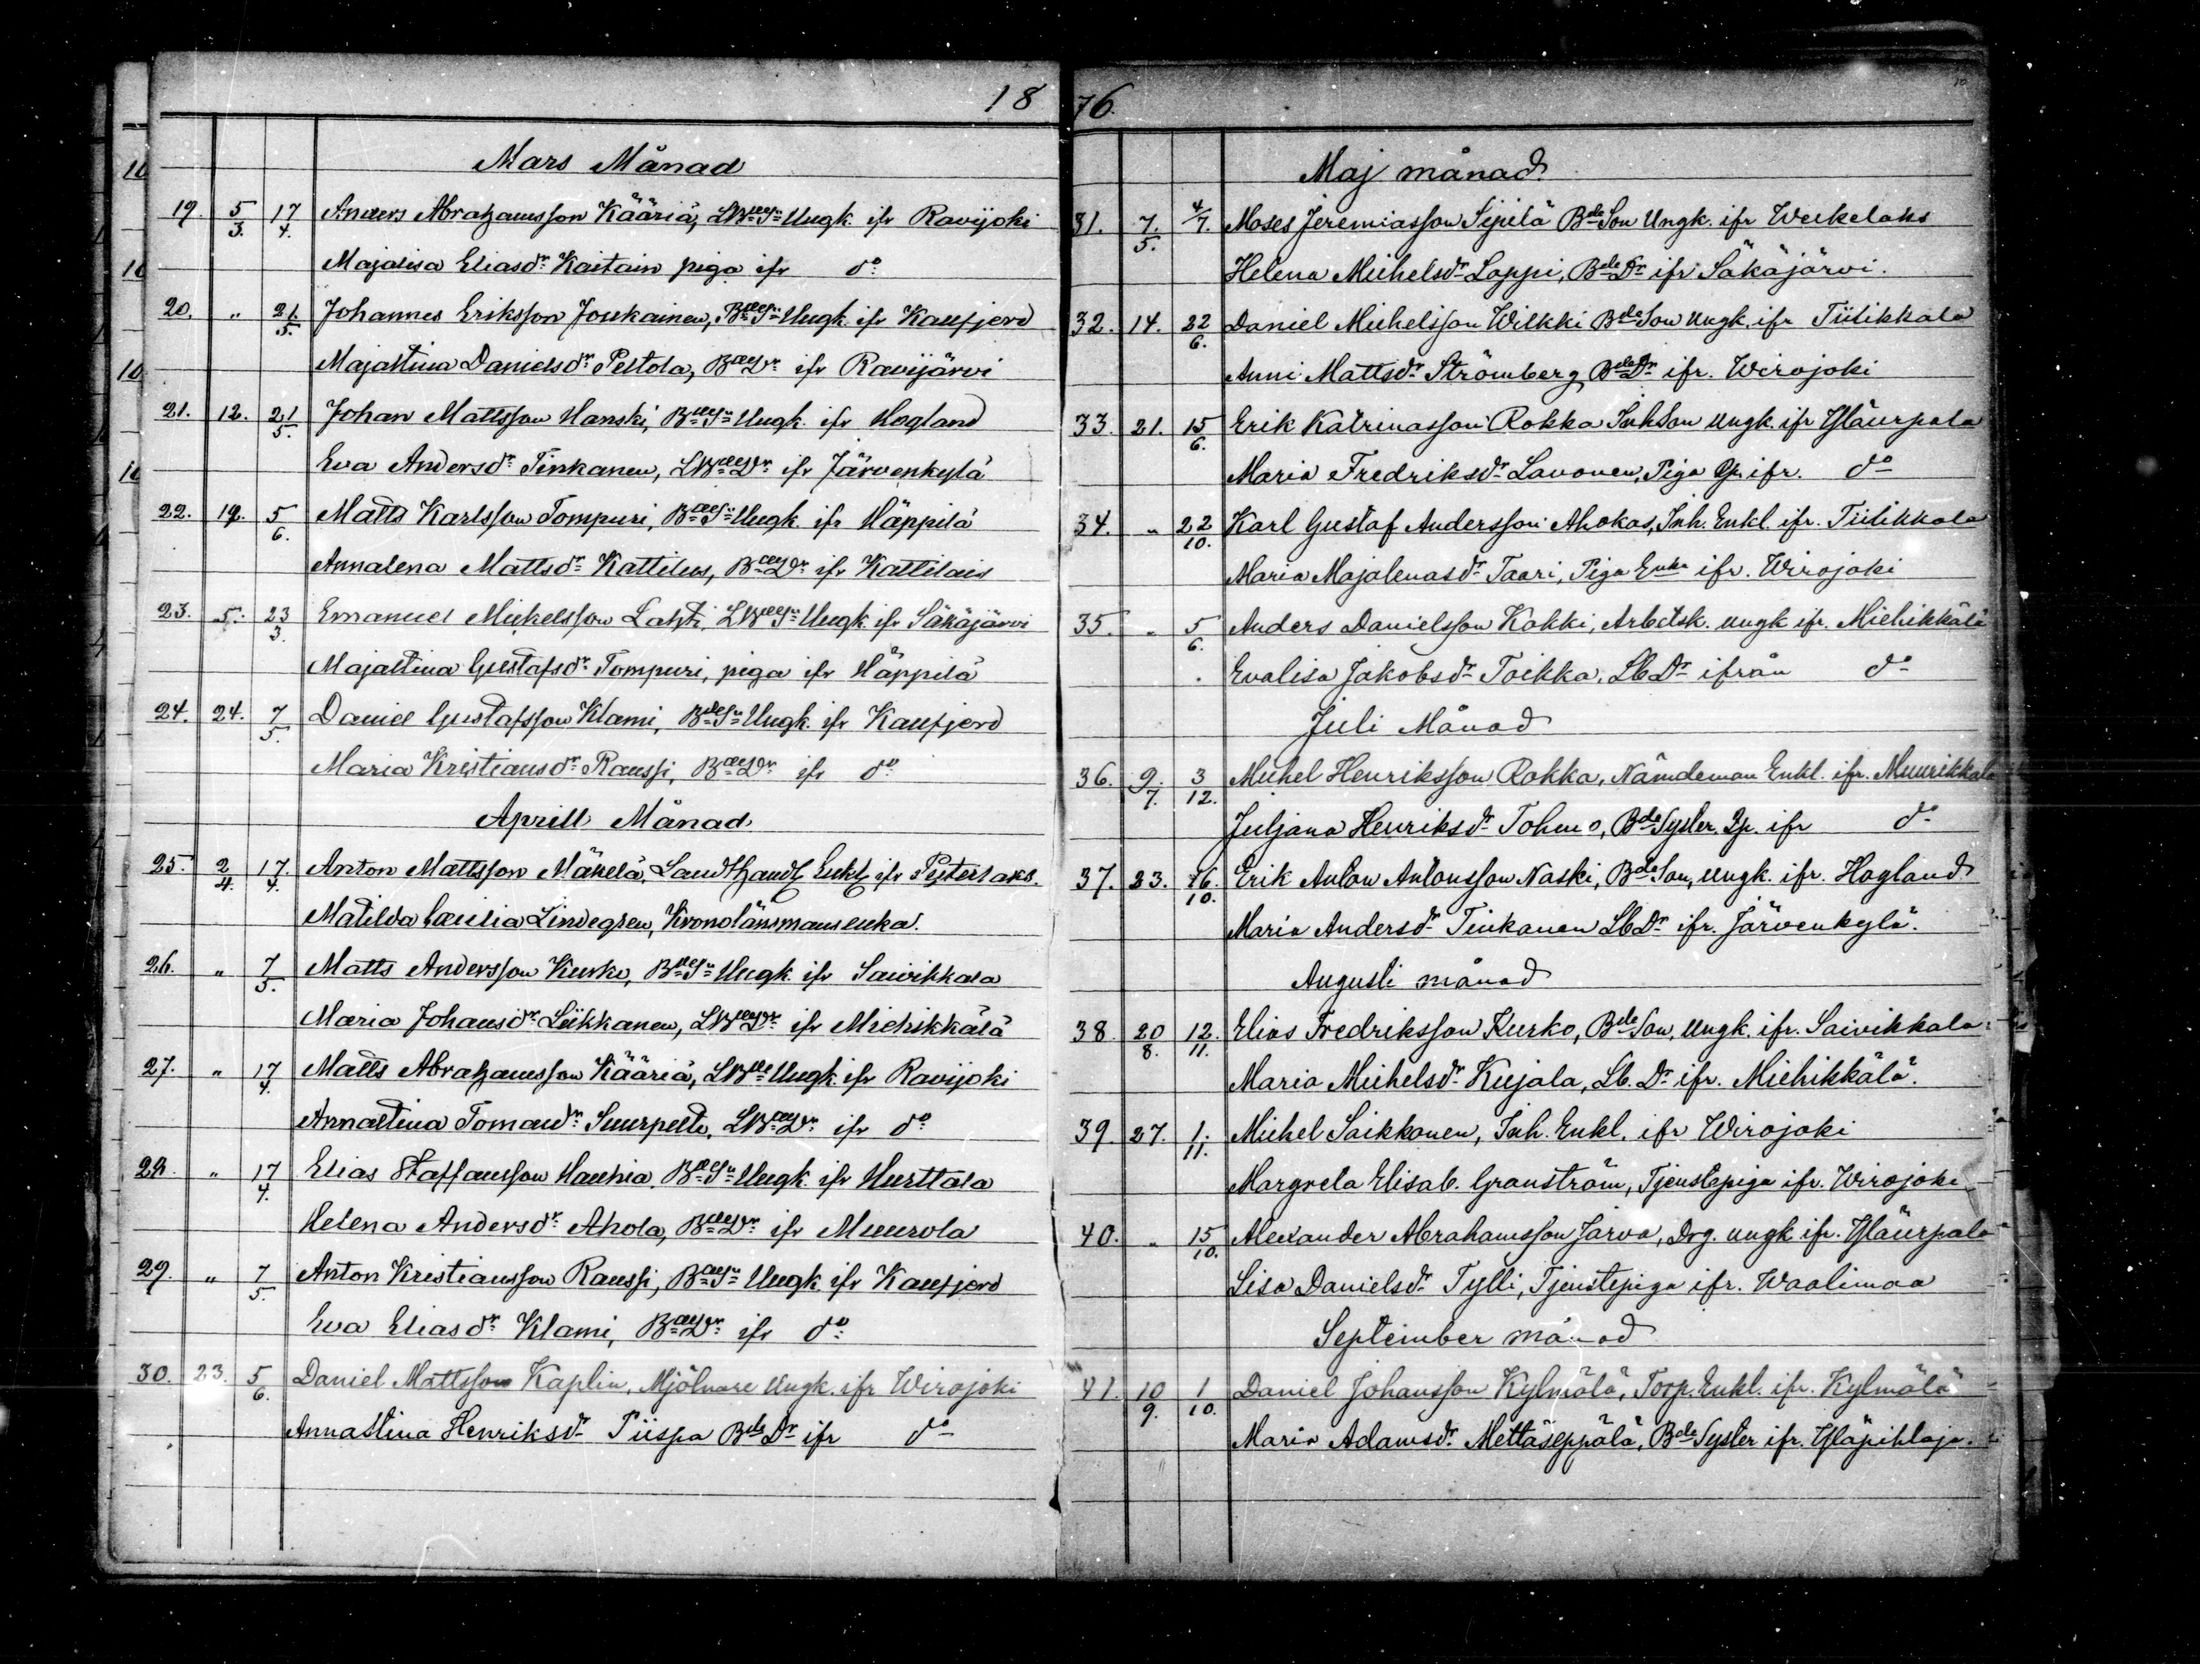 1876.
Mars Månad
19. 5/3. 17/4. Anders Abrahamsson Kääriä, LBdeSn Ungk. ifr Ravijoki
Majalisa Eliasdr Kaitain piga ifr do
20. " 21/5. Johannes Eriksson Joukainen, BdeSn Ungk. ifr Kaufjerd
Majastina Danielsdr Peltola, BdeDr ifr Ravijärvi
21. 12. 21/5. Johan Mattsson Hanski, BdeSn Ungk. ifr Hogland
Eva Andersdr Tinkanen, LBdeDr ifr Järvenkylä
22. 19. 5/6. Matts Karlsson Tompuri, BdeSn Ungk. ifr Häppilä
Annalena Mattsdr Kattilus, BdeDr ifr Kattilais
23. 5. 23/3. Emanuel Mickelsson Lahti, LBdeSn Ungk. ifr Säkäjärvi
Majastina Gustafsdr Tompuri, piga ifr Häppilä
24. 24. 7/5. Daniel Gustafsson Klami, BdeSn Ungk. ifr Kaufjerd
Maria Kristiansdr Raussi, BdeDr ifr do
Aprill Månad
25. 2/4. 17/4. Anton Mattsson Mäkelä, Landthandl Enkl ifr Pyterlaks.
Matilda Cæcilia Lindegren, Kronolänsmansenka.
26. " 7/5. Matts Andersson Kurko, BdeSn Ungk. ifr Saivikkala
Maria Johansdr Liikkanen, LBdeDr ifr Miehikkälä
27. " 17/4. Matts Abrahamsson Kääriä, LBde Ungk. ifr Ravijoki
Annastina Tomasdr Suurpelto, LBdeDr ifr do
28. " 17/4. Elias Staffansson Hauhia, BdeSn Ungk. ifr Hurttala
Helena Andersdr Ahola, BdeDr ifr Muurola
29. " 7/5. Anton Kristiansson Raussi, BdeSn Ungk. ifr Kaufjerd
Eva Eliasdr Klami, BdeDr ifr do
30. 23. 5/6. Daniel Mattsson Kaplin, Mjölnare Ungk. ifr Wirojoki
Annastina Henriksdr Piispa BdeDr ifr do
Maj månad
31. 7/5. 4/7. Moses Jeremiasson Sipilä BdeSon Ungk. ifr Weckelaks
Helena Michelsdr Loppi, BdeDr ifr Säkäjärvi.
32. 14. 22/6. Daniel Michelsson Wilkki BdeSon Ungk. ifr Tiilikkala
Anni Mattsdr Strömberg BdeDr ifr. Wirojoki
33. 21. 15/6. Erik Katrinasson Rokka InhSon Ungk. ifr Yläurpala
Maria Fredriksdr Lavonen, Piga Qp. ifr. do
34. " 22/10. Karl Gustaf Andersson Ahokas, Inh. Enkl. ifr. Tiilikkala
Maria Majalenasdr Taari, Piga Enka ifr. Wirojoki
35. " 5/6. Anders Danielsson Kokki, Arbetsk. ungk ifr. Miehikkälä
Evalisa Jakobsdr Toikka, LbDr ifrån do
Juli Månad
36. 9/7. 3/12. Michel Henriksson Rokka, Nämdeman Enkl. ifr. Muurikkala
Juljana Henriksdr Tohmo, BdeSyster. Qp. ifr do
37. 23. 16/10. Erik Anton Antonsson Naski, BdeSon, Ungk. ifr. Hogland
Maria Andersdr Tinkanen LbDr ifr. Järvenkylä.
Augusti månad
38. 20/8. 12/11. Elias Fredriksson Kurko, BdeSon, Ungk. ifr. Saivikkala
Maria Michelsdr Kujala, Lb. Dr ifr. Miehikkälä.
39. 27. 1/11. Michel Saikkonen, Inh. Enkl. ifr Wirojoki
Margreta Elisab. Granström, Tjenstepiga ifr. Wirojoki
40. " 15/10. Alexander Abrahamsson Järva, Drg. ungk ifr. Yläurpala
Lisa Danielsdr Tylli, Tjenstepiga ifr. Waalimaa
September månad
41. 10/9. 1/10. Daniel Johansson Kylmälä, Torp. Enkl. ifr. Kylmälä
Maria Adamsdr Mettäseppälä, BdeSyster ifr. Yläpihlaja.